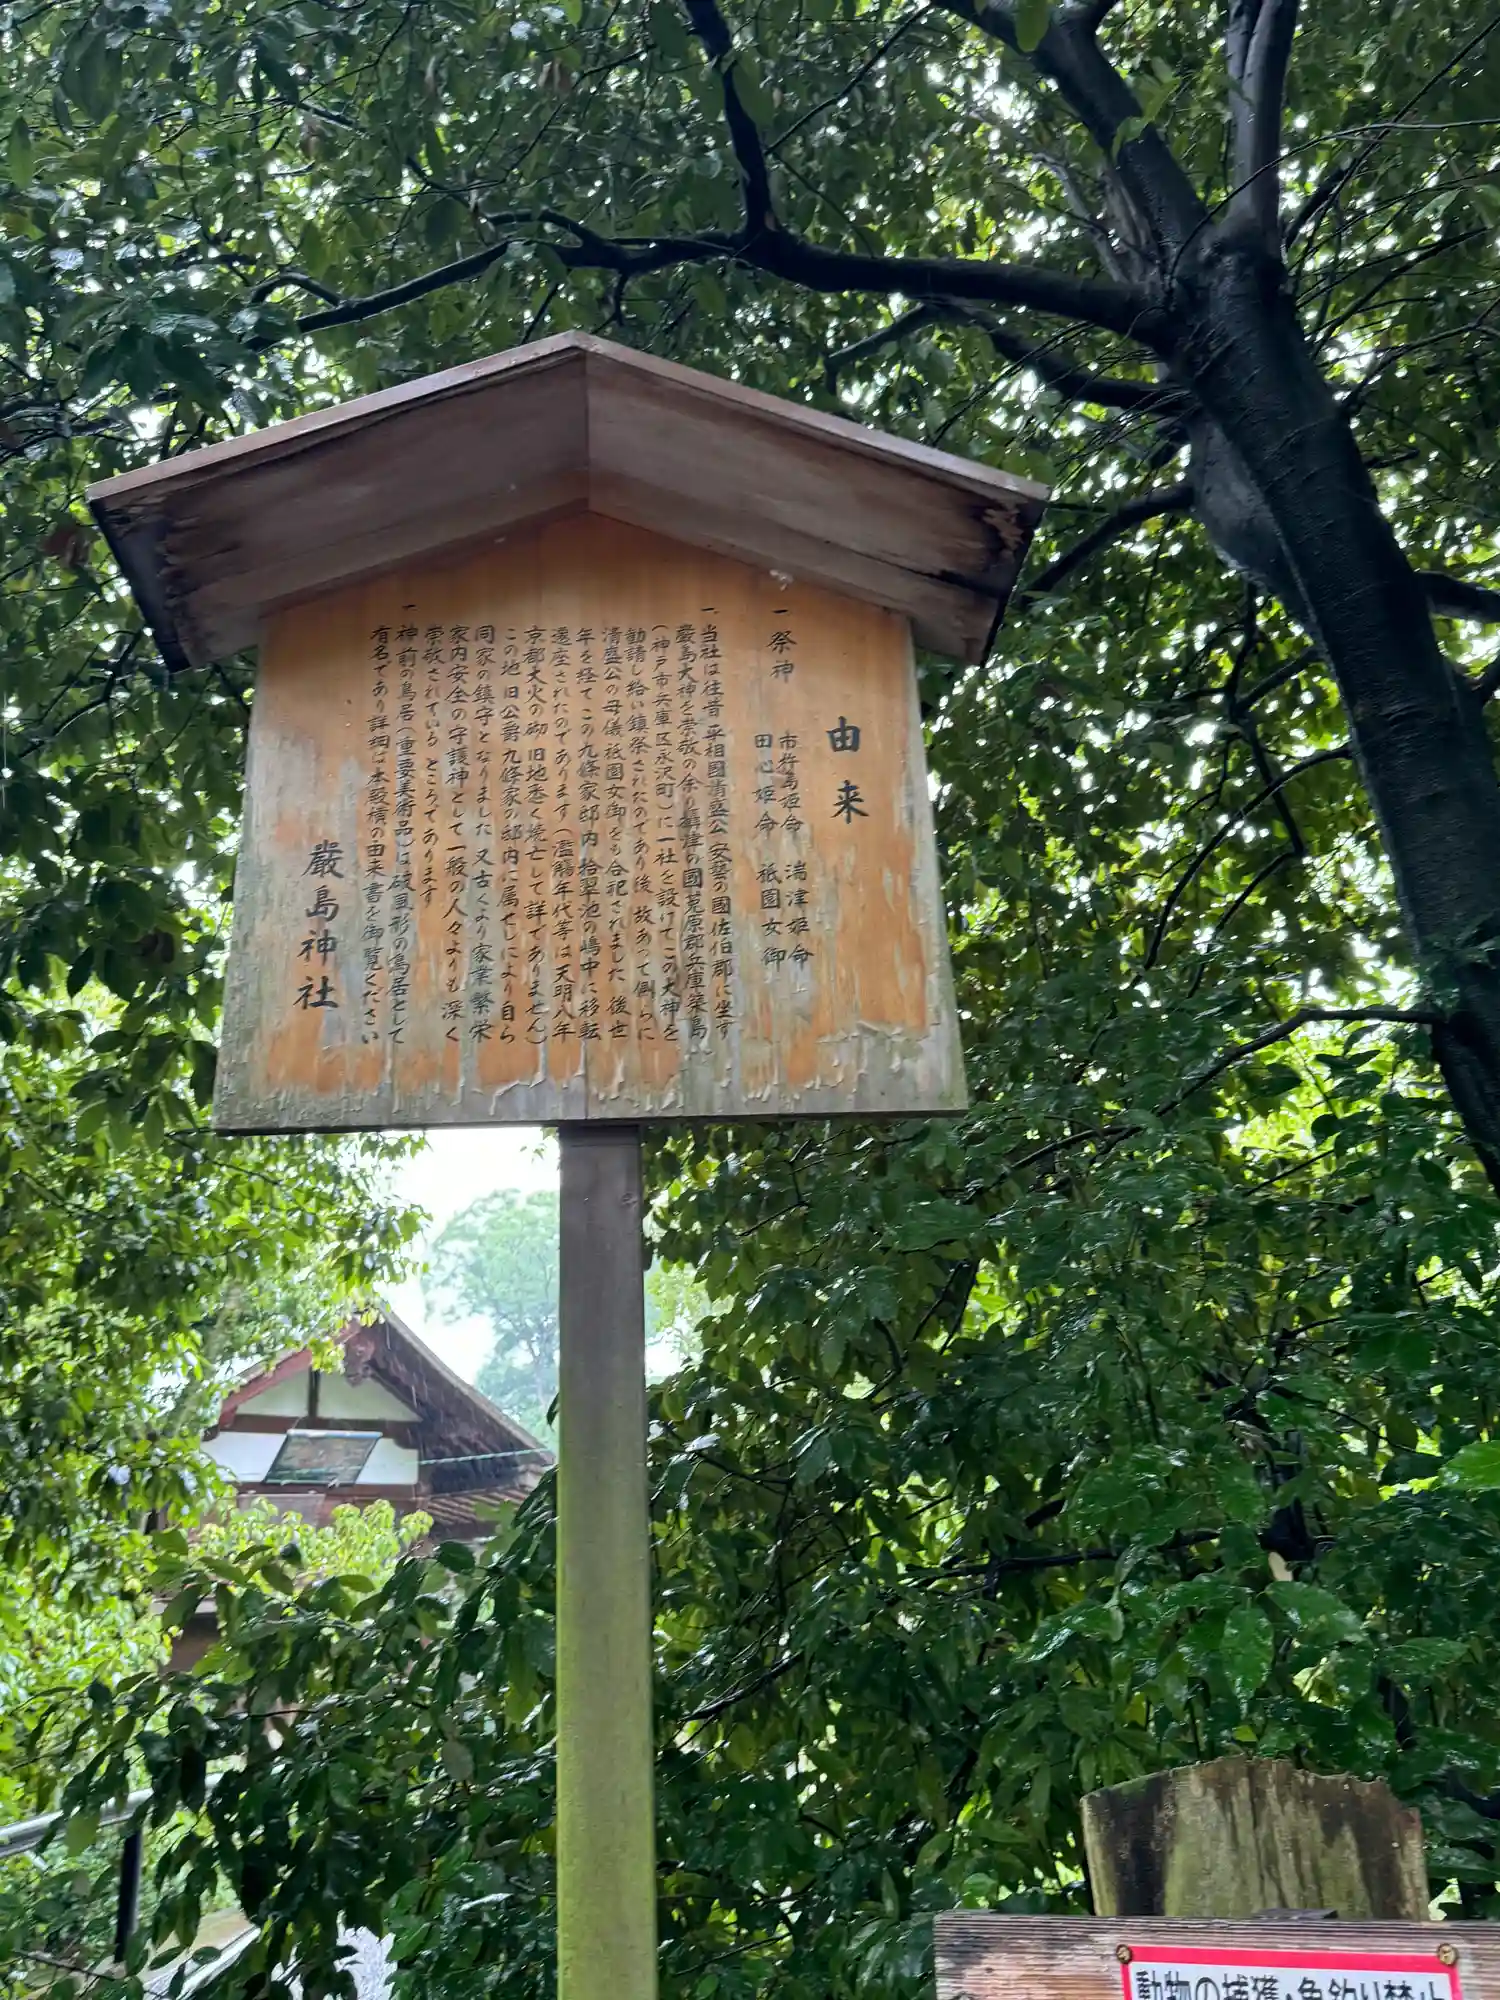 由来
一 祭神 市杵島姫命 湍津姫命
田心姫命 祇園女御
一、当社は往昔 平相國清盛公 安藝の國佐伯郡に坐す
嚴島大神を崇敬の余り 摂津の國菟原郡兵庫築島
(神戸市兵庫区永沢町)に一社を設けてこの大神を
勧請し給い鎮祭されたのであり後 故あって側らに
清盛公の母儀祇園女御をも合祀されました 後世
年を経て この九條家邸内 拾翠池の嶋中に移転
還座されたのであります (濫觴年代等は天明八年
京都大火の砌 旧地悉く焼亡して詳でありません)
この地 旧公爵九條家の邸内に属せしにより自ら
同家の鎮守となりました 又古くより家業繁栄
家内安全の守護神として 一般の人々よりも 深く
崇敬されている ところであります
一 神前の鳥居(重要美術品)は破風形の鳥居として
有名であり詳細は本殿横の由来書を御覧ください
嚴島神社
動物の捕獲・魚釣り禁止